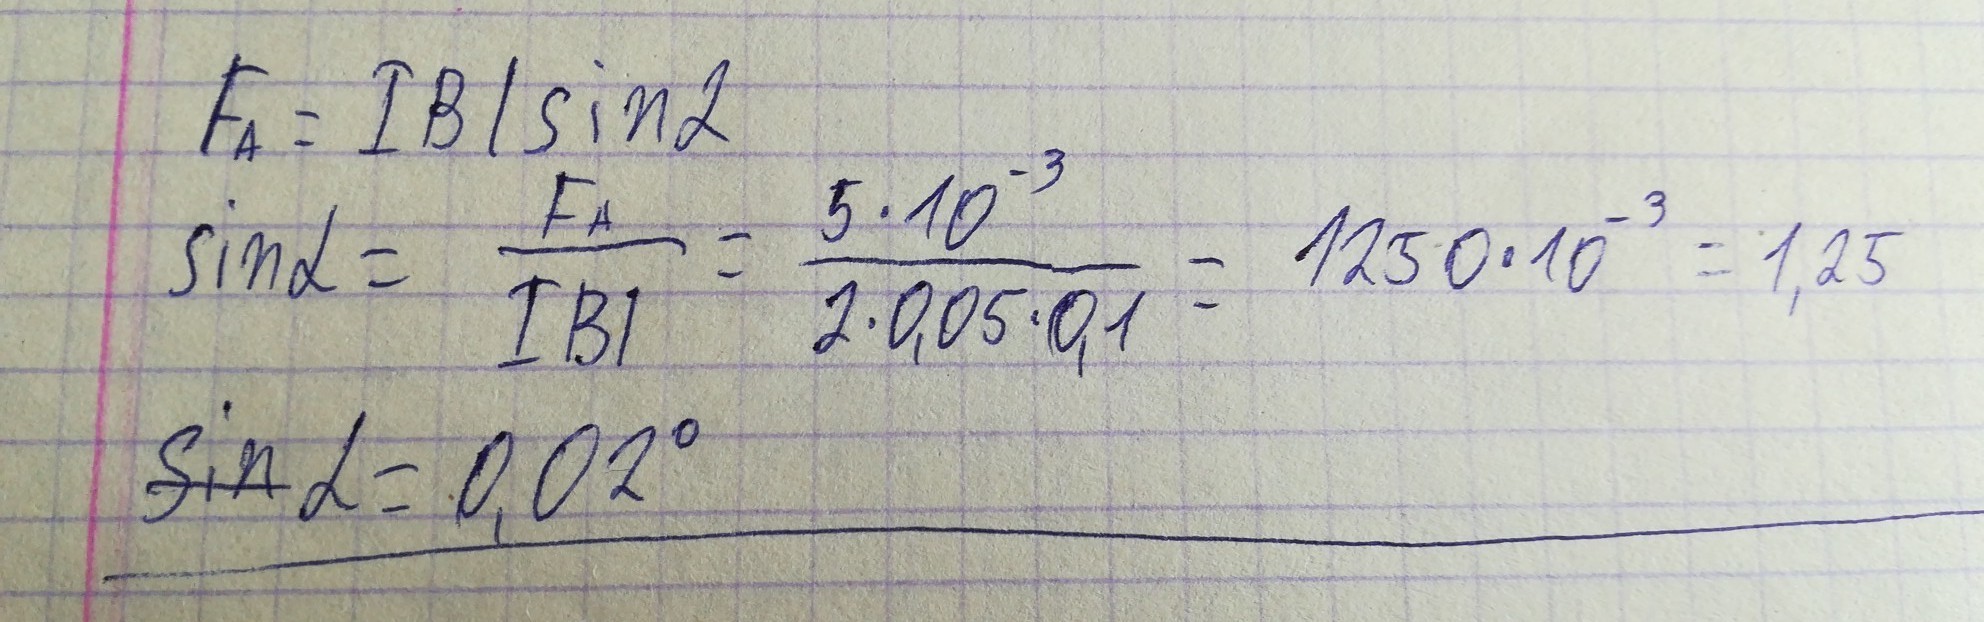 F_A = I B l sin α
sin α = F_A / (I B l) = 5·10⁻³ / (2·0,05·0,1) = 1250·10⁻³ = 1,25
~~sin~~ α = 0,02°